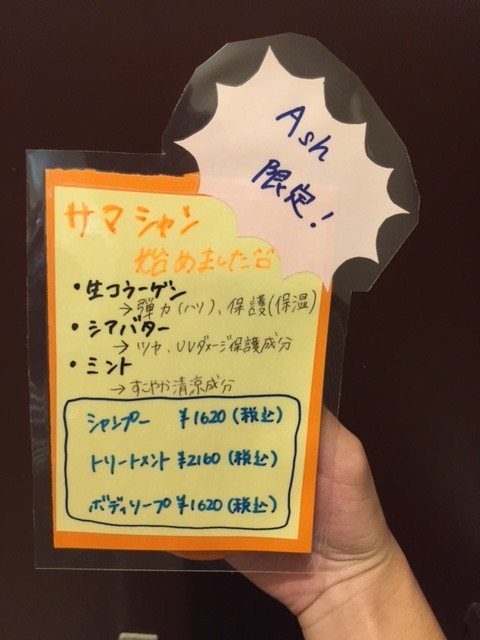 Ash
限定!
サマシャン
始めました
・生コラーゲン
→弾力(ハリ)、保護(保湿)
・シアバター
→ツヤ、UVダメージ保護成分
・ミント
→すこやか清涼成分
シャンプー ¥1620(税込)
トリートメント ¥2160(税込)
ボディソープ ¥1620(税込)